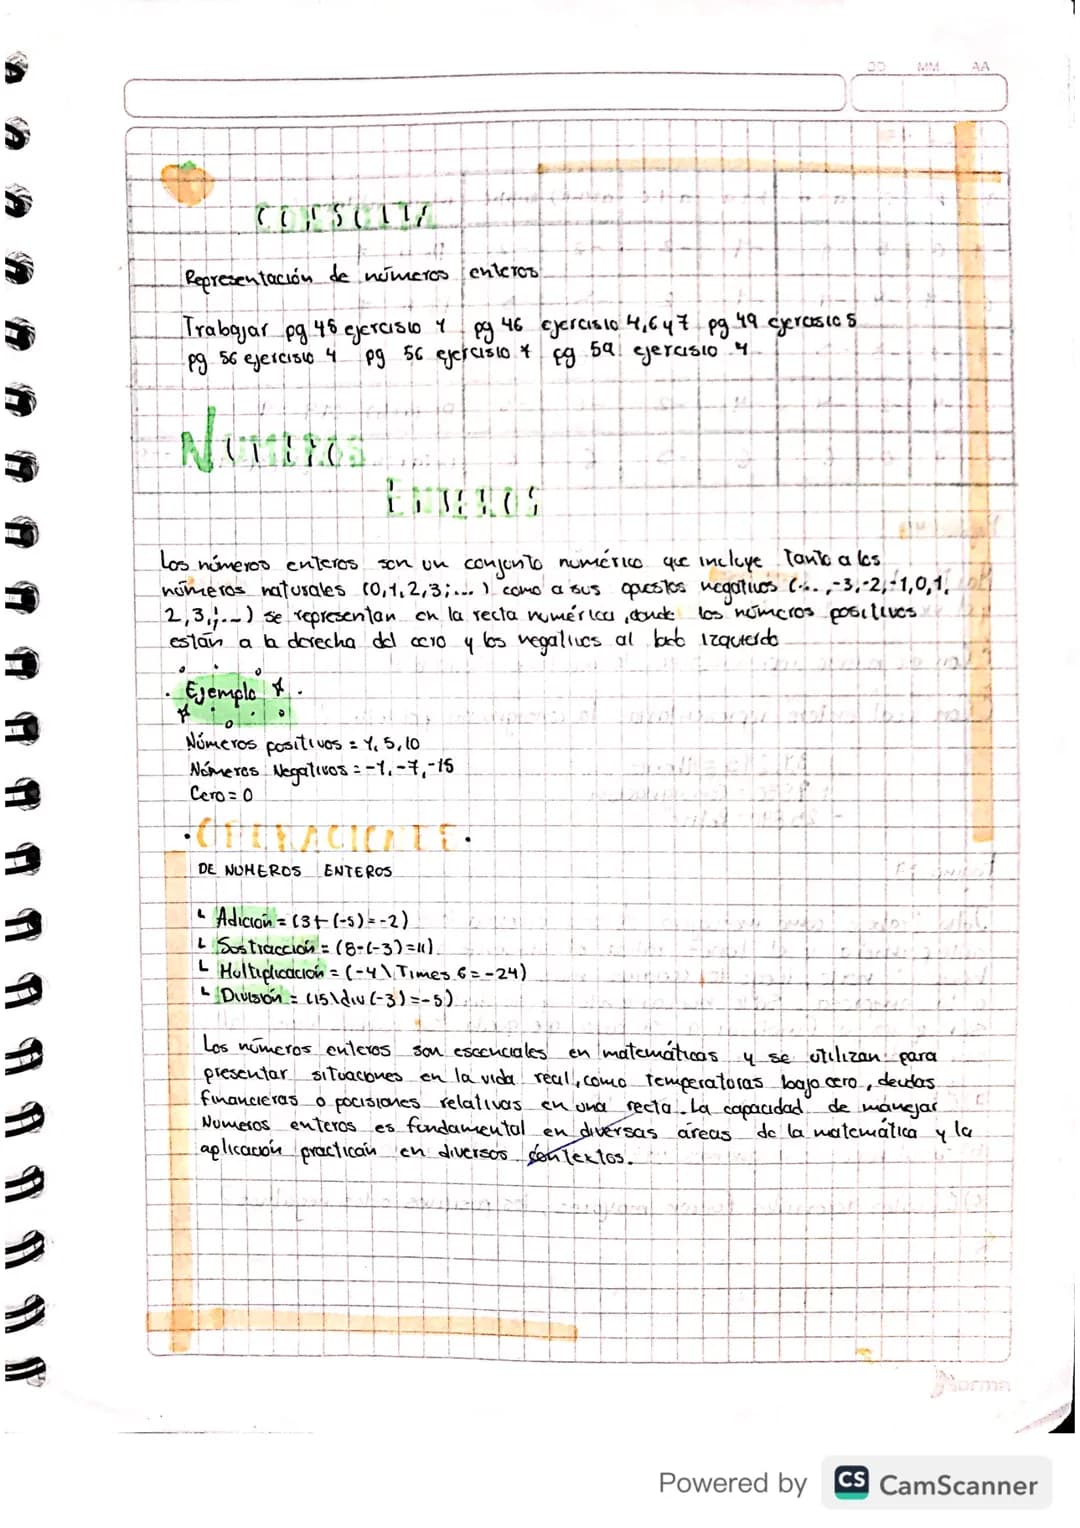 DD MM AA
CONSULTA
Representación de números enteros
Trabajar pg 45 ejercisio 4 pg 46 ejercisio 4,6 y 7 pg 49 ejercosio 5
pg 56 ejercisio 4 pg 56 ejercisio 7 pg 59 ejercisio 4
NUMEROS
ENTEROS
Los números enteros son un conjunto numérico que incluye Tanto a los
números naturales (0,1,2,3;...) como a sus opuestos negativos (...,-3,-2,-1,0,1,
2,3,;...) se representan en la recta numérica ,donde los números positivos
están a la derecha del cero y los negativos al lado izquierdo
Ejemplo
Números positivos = 1, 5, 10
Números Negativos = -1, -7, -15
Cero = 0
OPERACIONES
DE NUMEROS ENTEROS
Adición = (3+(-5)=-2)
Sostracción = (8-(-3)=11)
Multiplicación = (-4\Times 6=-24)
División = (15\div(-3)=-5)
Los números enteros son escenciales en matemáticas y se utilizan para
presentar situaciones en la vida real, como temperatoras bajo cero, deudas
financieras o pocisiones relativas en una recta. La capacidad de manejar
Numeros enteros es fundamental en diversas áreas de la matemática y la
aplicación practican en diversos contextos.
Norma
Powered by CS CamScanner